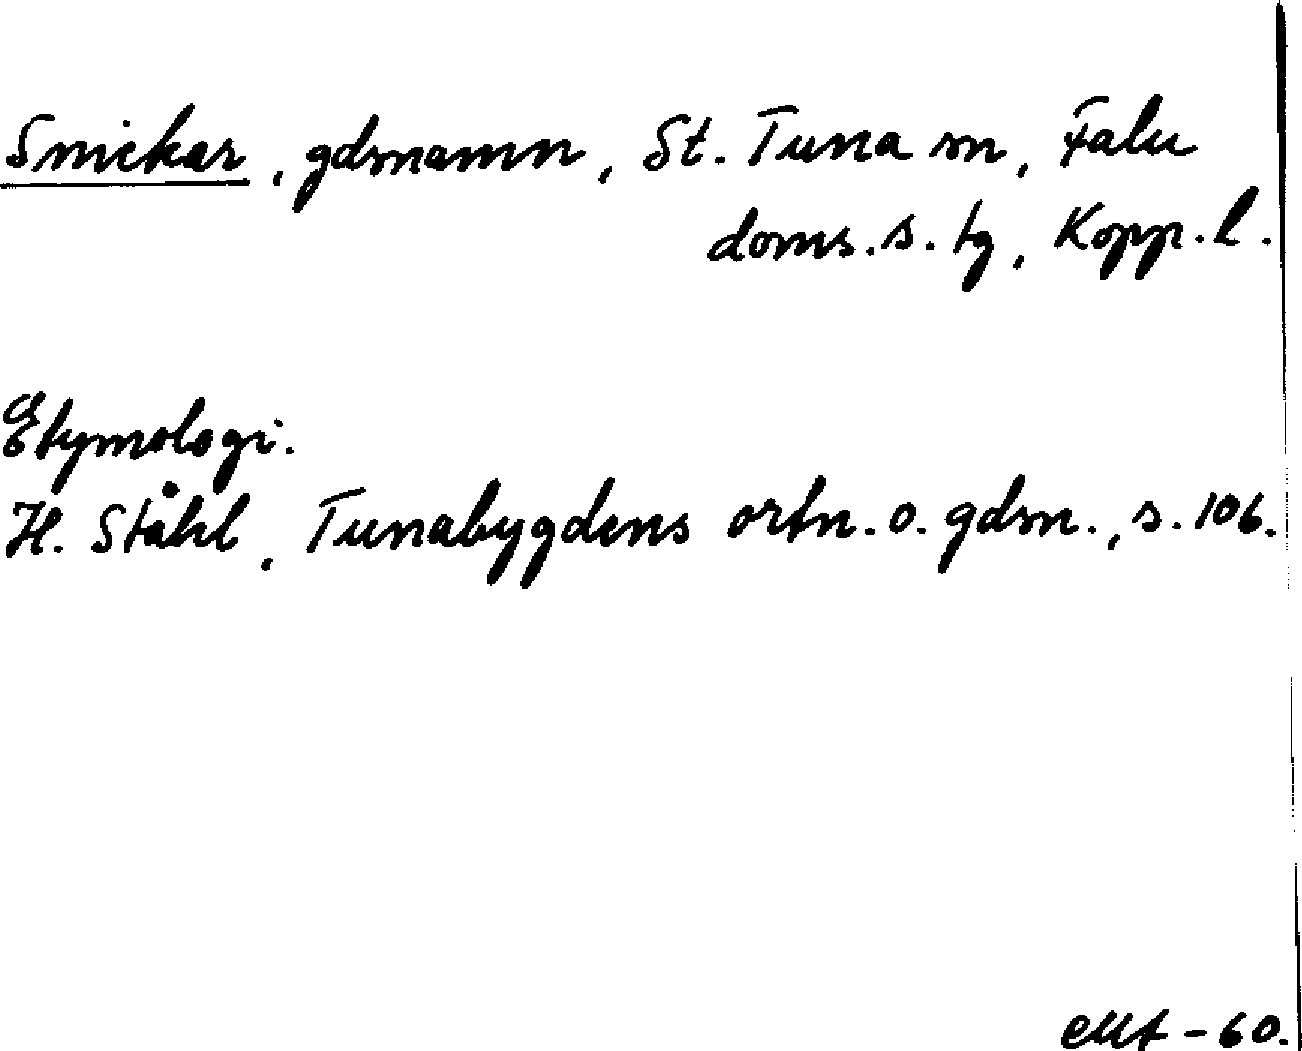 Snickar, gdsnamn, St. Tuna sn, Falu
doms.s. tg, Kopp. l.
Etymologi.
H. Ståhl, Tunabygdens ortn. o. gdsn., s. 106.
-60.